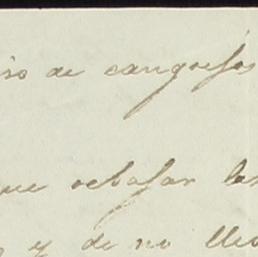 iso de cangrejos
que rebasan las
y de no lle